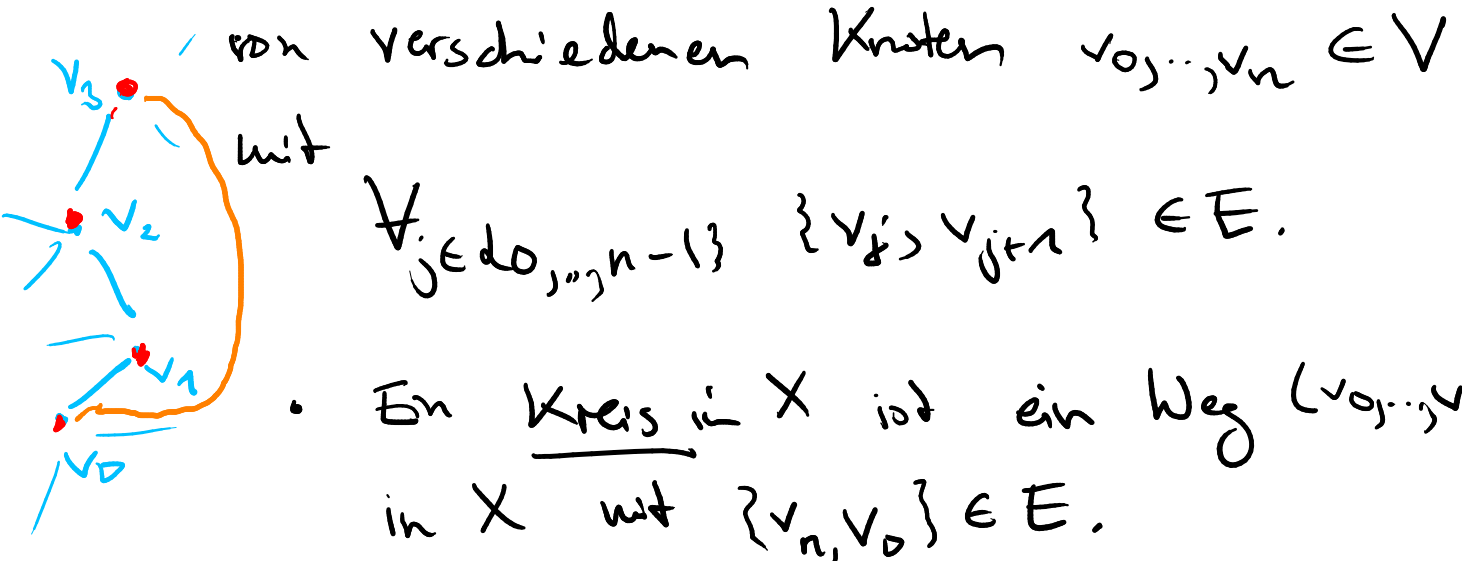 von verschiedenen Knoten v₀,..,vₙ ∈ V
mit
∀ⱼ∈{0,..,n-1} {vⱼ, vⱼ₊₁} ∈ E.
• Ein Kreis in X ist ein Weg (v₀,..,v
in X mit {vₙ, v₀} ∈ E.
v₃
v₂
v₁
v₀